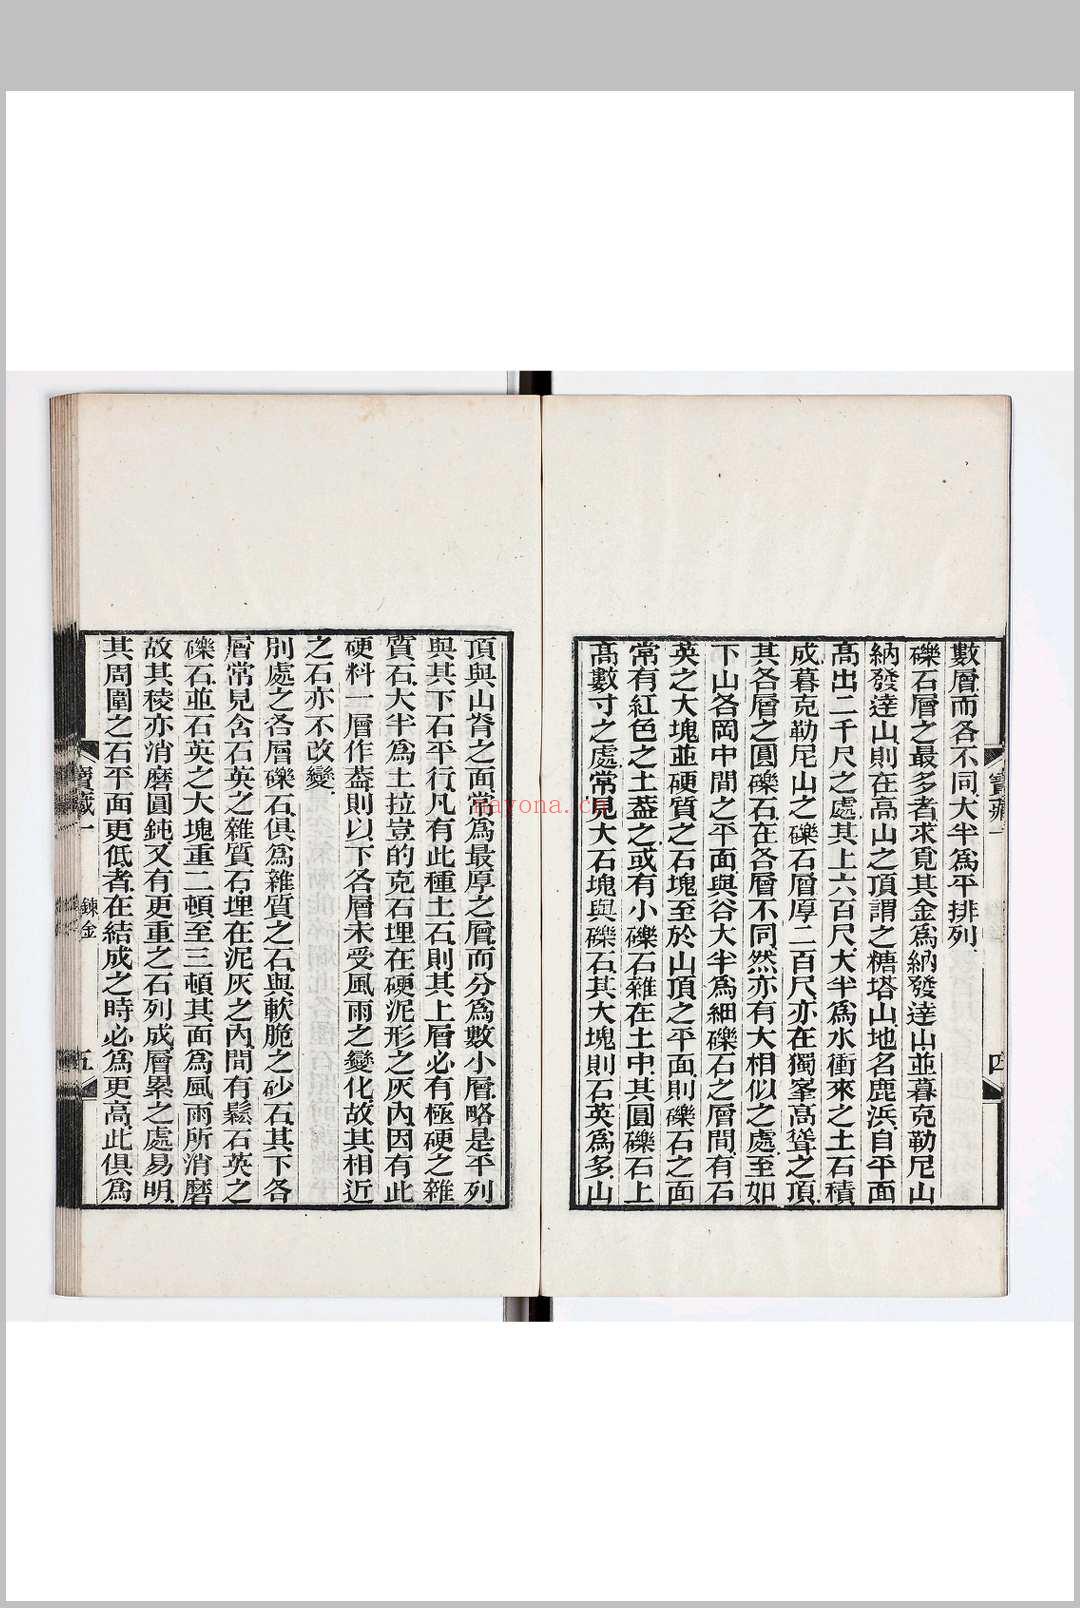 數層而各不同大半爲平排列
礫石層之最多者求覓其金爲納發達山並暮克勒尼山
納發達山則在高山之頂謂之糖塔山地名鹿浜自平面
高出二千尺之處其上六百尺大半爲水衝來之土石積
成暮克勒尼山之礫石層厚二百尺亦在獨峯高聳之頂
其各層之圓礫石在各層不同然亦有大相似之處至如
下山各岡中間之平面與谷大半爲細礫石之層間有石
英之大塊並硬質之石塊至於山頂之平面則礫石之面
常有紅色之土葢之或有小礫石雜在土中其圓礫石上
高數寸之處常見大石塊與礫石其大塊則石英爲多山
寶藏一
四
頂與山脊之面常爲最厚之層而分爲數小層略是平列
與其下石平行凡有此種土石則其上層必有極硬之雜
質石大半爲土拉豈的克石埋在硬泥形之灰內因有此
硬料一層作葢則以下各層未受風雨之變化故其相近
之石亦不改變
別處之各層礫石俱爲雜質之石與軟脆之砂石其下各
層常見含石英之雜質石埋在泥灰之內間有鬆石英之
礫石並石英之大塊重二頓至三頓其面爲風雨所消磨
故其稜亦消磨圓鈍又有更重之石列成層累之處易明
其周圍之石平面更低者在結成之時必爲更高此俱爲
寶藏一
鍊金
五
nayona.cn